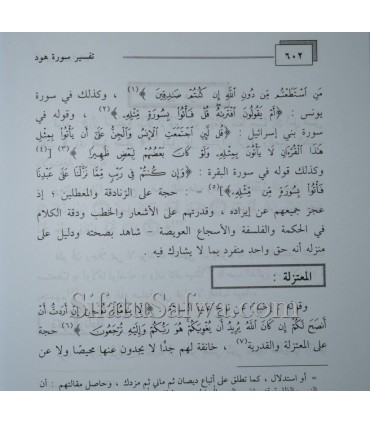 ٦٠٢
تفسير سورة هود
مَنِ اسْتَطَعْتُم مِّن دُونِ اللَّهِ إِن كُنتُمْ صَادِقِينَ ﴾(١) ، وكذلك في سورة
يونس : ﴿ أَمْ يَقُولُونَ افْتَرَاهُ قُلْ فَأْتُوا بِسُورَةٍ مِّثْلِهِ ﴾(٢) ، وقوله في
سورة بني إسرائيل : ﴿ قُل لَّئِنِ اجْتَمَعَتِ الْإِنسُ وَالْجِنُّ عَلَىٰ أَن يَأْتُوا بِمِثْلِ
هَٰذَا الْقُرْآنِ لَا يَأْتُونَ بِمِثْلِهِ وَلَوْ كَانَ بَعْضُهُمْ لِبَعْضٍ ظَهِيرًا ﴾(٣) [(٤)
وكذلك قوله في سورة البقرة : ﴿ وَإِن كُنتُمْ فِي رَيْبٍ مِّمَّا نَزَّلْنَا عَلَىٰ عَبْدِنَا
فَأْتُوا بِسُورَةٍ مِّن مِّثْلِهِ ﴾](٥) – : حجة على الزنادقة والمعطلين ؛ إذ
عجز جميعهم عن إيراده ، وقدرتهم على الأشعار والخطب ودقة الكلام
في الحكمة والفلسفة والأسجاع العويصة – شاهد بصحته ودليل على
منزله أنه حق واحد منفرد بما لا يشارك فيه .
المعتزلة :
وقوله
أَنصَحَ لَكُمْ إِن كَانَ اللَّهُ يُرِيدُ أَن يُغْوِيَكُمْ هُوَ رَبُّكُمْ وَإِلَيْهِ تُرْجَعُونَ ﴾(٦) حجة
على المعتزلة والقدرية(٧) ، خانقة لهم جدًّا لا يجدون عنها محيصًا ولا عن
= أو استدلال ، كما تطلق على أتباع ديصان ثم ماني ثم مزدك ، وحاصل مقالتهم : أن
SifatuSafwa.com